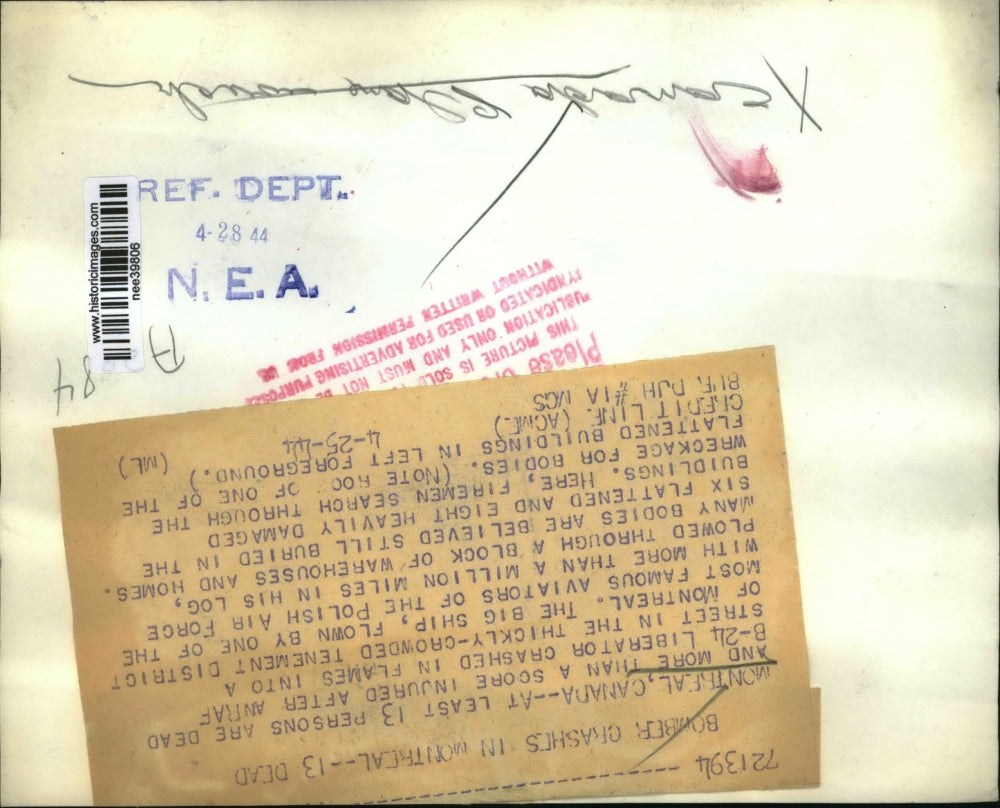 X Canada Plane crash
REF. DEPT.
4-28 44
N. E. A.
www.historicimages.com
nee39806
A
84
Please
THIS PICTURE IS SOLD
PUBLICATION ONLY AND MUST NOT BE
SYNDICATED OR USED FOR ADVERTISING PURPOSES
WITHOUT WRITTEN PERMISSION FROM US
721394
BOMBER CRASHES IN MONTREAL--13 DEAD
MONTREAL, CANADA--AT LEAST 13 PERSONS ARE DEAD
AND MORE THAN A SCORE INJURED AFTER AN RAF
B-24 LIBERATOR CRASHED IN FLAMES INTO A
STREET IN THE THICKLY-CROWDED TENEMENT DISTRICT
OF MONTREAL. THE BIG SHIP, FLOWN BY ONE OF THE
MOST FAMOUS AVIATORS OF THE POLISH AIR FORCE
WITH MORE THAN A MILLION MILES IN HIS LOG,
PLOWED THROUGH A BLOCK OF WAREHOUSES AND HOMES.
MANY BODIES ARE BELIEVED STILL BURIED IN THE
SIX FLATTENED AND EIGHT HEAVILY DAMAGED
BUIDLINGS. HERE, FIREMEN SEARCH THROUGH THE
WRECKAGE FOR BODIES. (NOTE ROOF OF ONE OF THE
FLATTENED BUILDINGS IN LEFT FOREGROUND.)
CREDIT LINE (ACME) 4-25-44 (ML)
BUR DJH #1A MGS